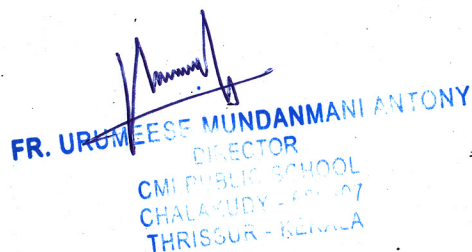 FR. URUMEESE MUNDANMANI ANTONY
DIRECTOR
CMI PUBLIC SCHOOL
CHALAKUDY -
THRISSUR - KERALA